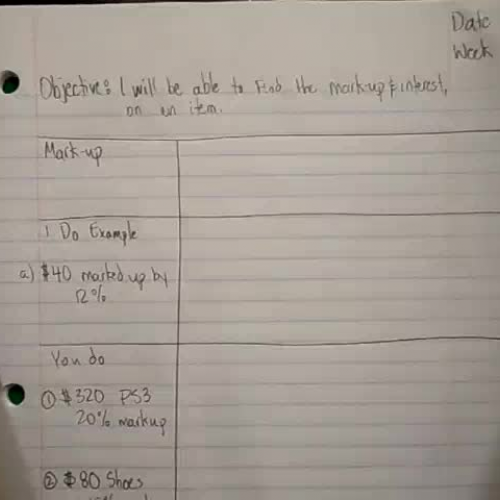 Date
Week
Objective: I will be able to Find the mark-up & interest,
on an item.
Mark-up
I Do Example
a) $40 marked up by
12%
You do
① $320 PS3
20% markup
② $80 Shoes